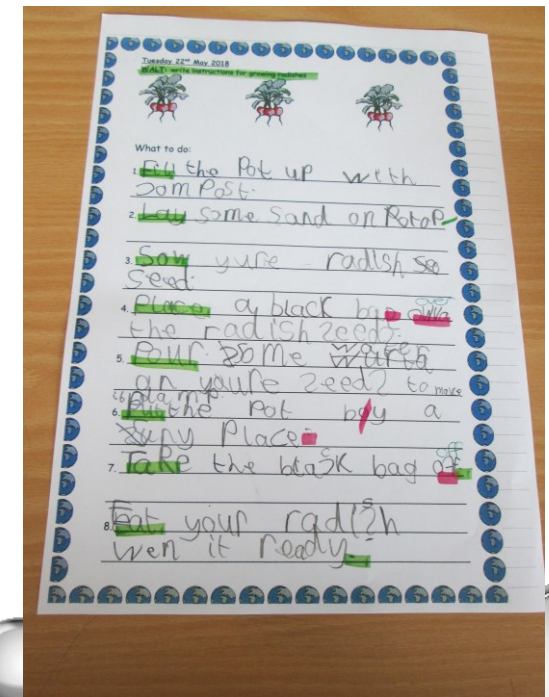 Tuesday 22nd May 2018
WALT: write instructions for growing radishes
What to do:
1. Fill the Pot up with
som Post.
2. Lay some Sand on
3. Sow yure radish
Seed.
4. Place a black bag over
the radish zeedz.
5. Pour some
an youre zeedz to make
it damp.
6. Put the Pot by a
suny Place.
7. Take the black bag off
8. Eat your radish
wen it ready.